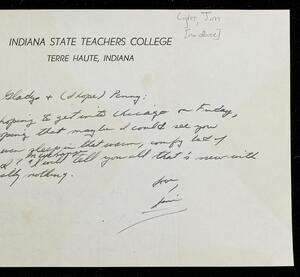 Light, Jim
INDIANA STATE TEACHERS COLLEGE
TERRE HAUTE, INDIANA
Gladys & (I hope) Penny:
hoping to get into Chicago on Friday,
oping that maybe I could see you
even sleep in that warm, comfy bed of
I'll tell you all that's new with
ally nothing.
Love,
Jim